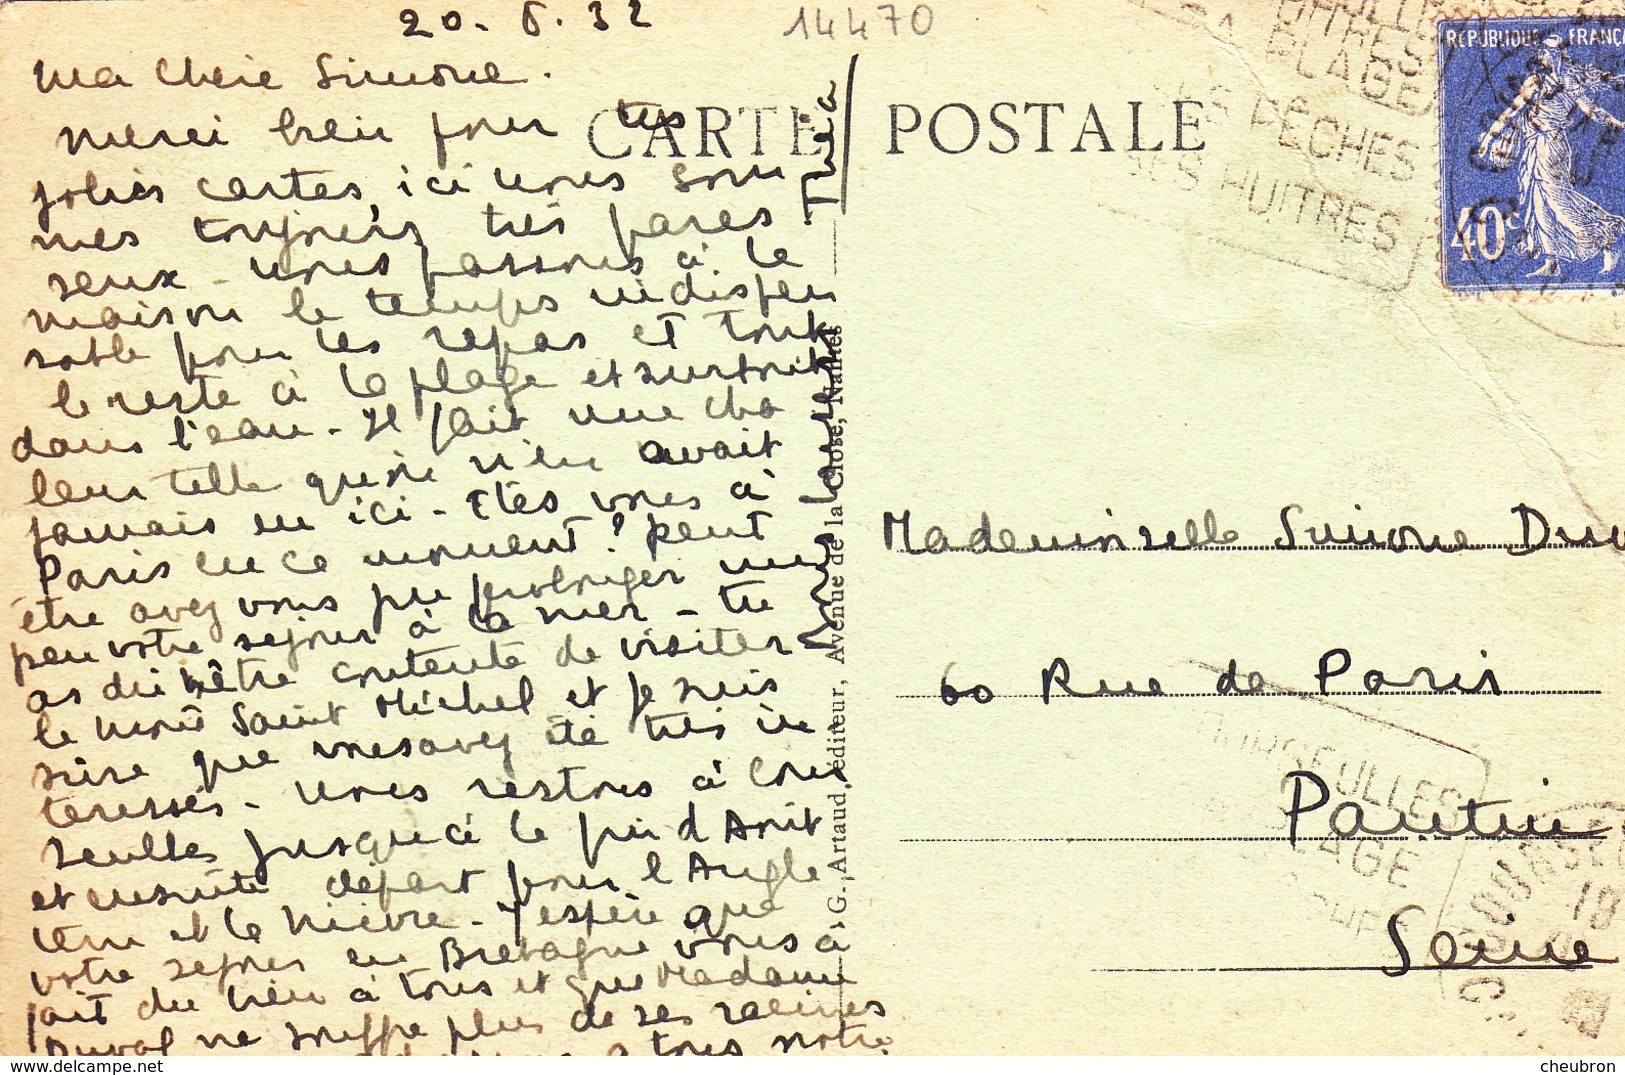 20. 8. 32
14470
Ma chère Simone.
CARTE POSTALE
Merci bien pour tes
jolies cartes, ici nous som
mes toujours très pares
seux - nous passons à la
maison le temps indispen
sable pour les repas et tout
le reste à la plage et surtout
dans l'eau - Il fait une cha
leur telle qu'on n'en avait
jamais eu ici - Etes vous à
Paris en ce moment? peut
être avez vous pu prolonger un
peu votre séjour à la mer - tu
as dû être contente de visiter
le Mont Saint Michel et je suis
sûre que vous avez été très in
teressés - Nous restons à Cour
seulles jusqu'à la fin d'Août
et ensuite départ pour l'Angle
terre et la Nièvre - J'espère que
votre séjour en Bretagne vous a
fait du bien à tous et que Madame
Duval ne souffre plus de ses
à tous notre
G. Artaud, éditeur, Avenue de la Close, Nantes
RÉPUBLIQUE FRANÇA
40c
PLAGE
SES PÊCHES
SES HUITRES
Mademoiselle Simone Duv
60 Rue de Paris
Pantin
Seine
COURSEULLES
PLAGE
cheubron